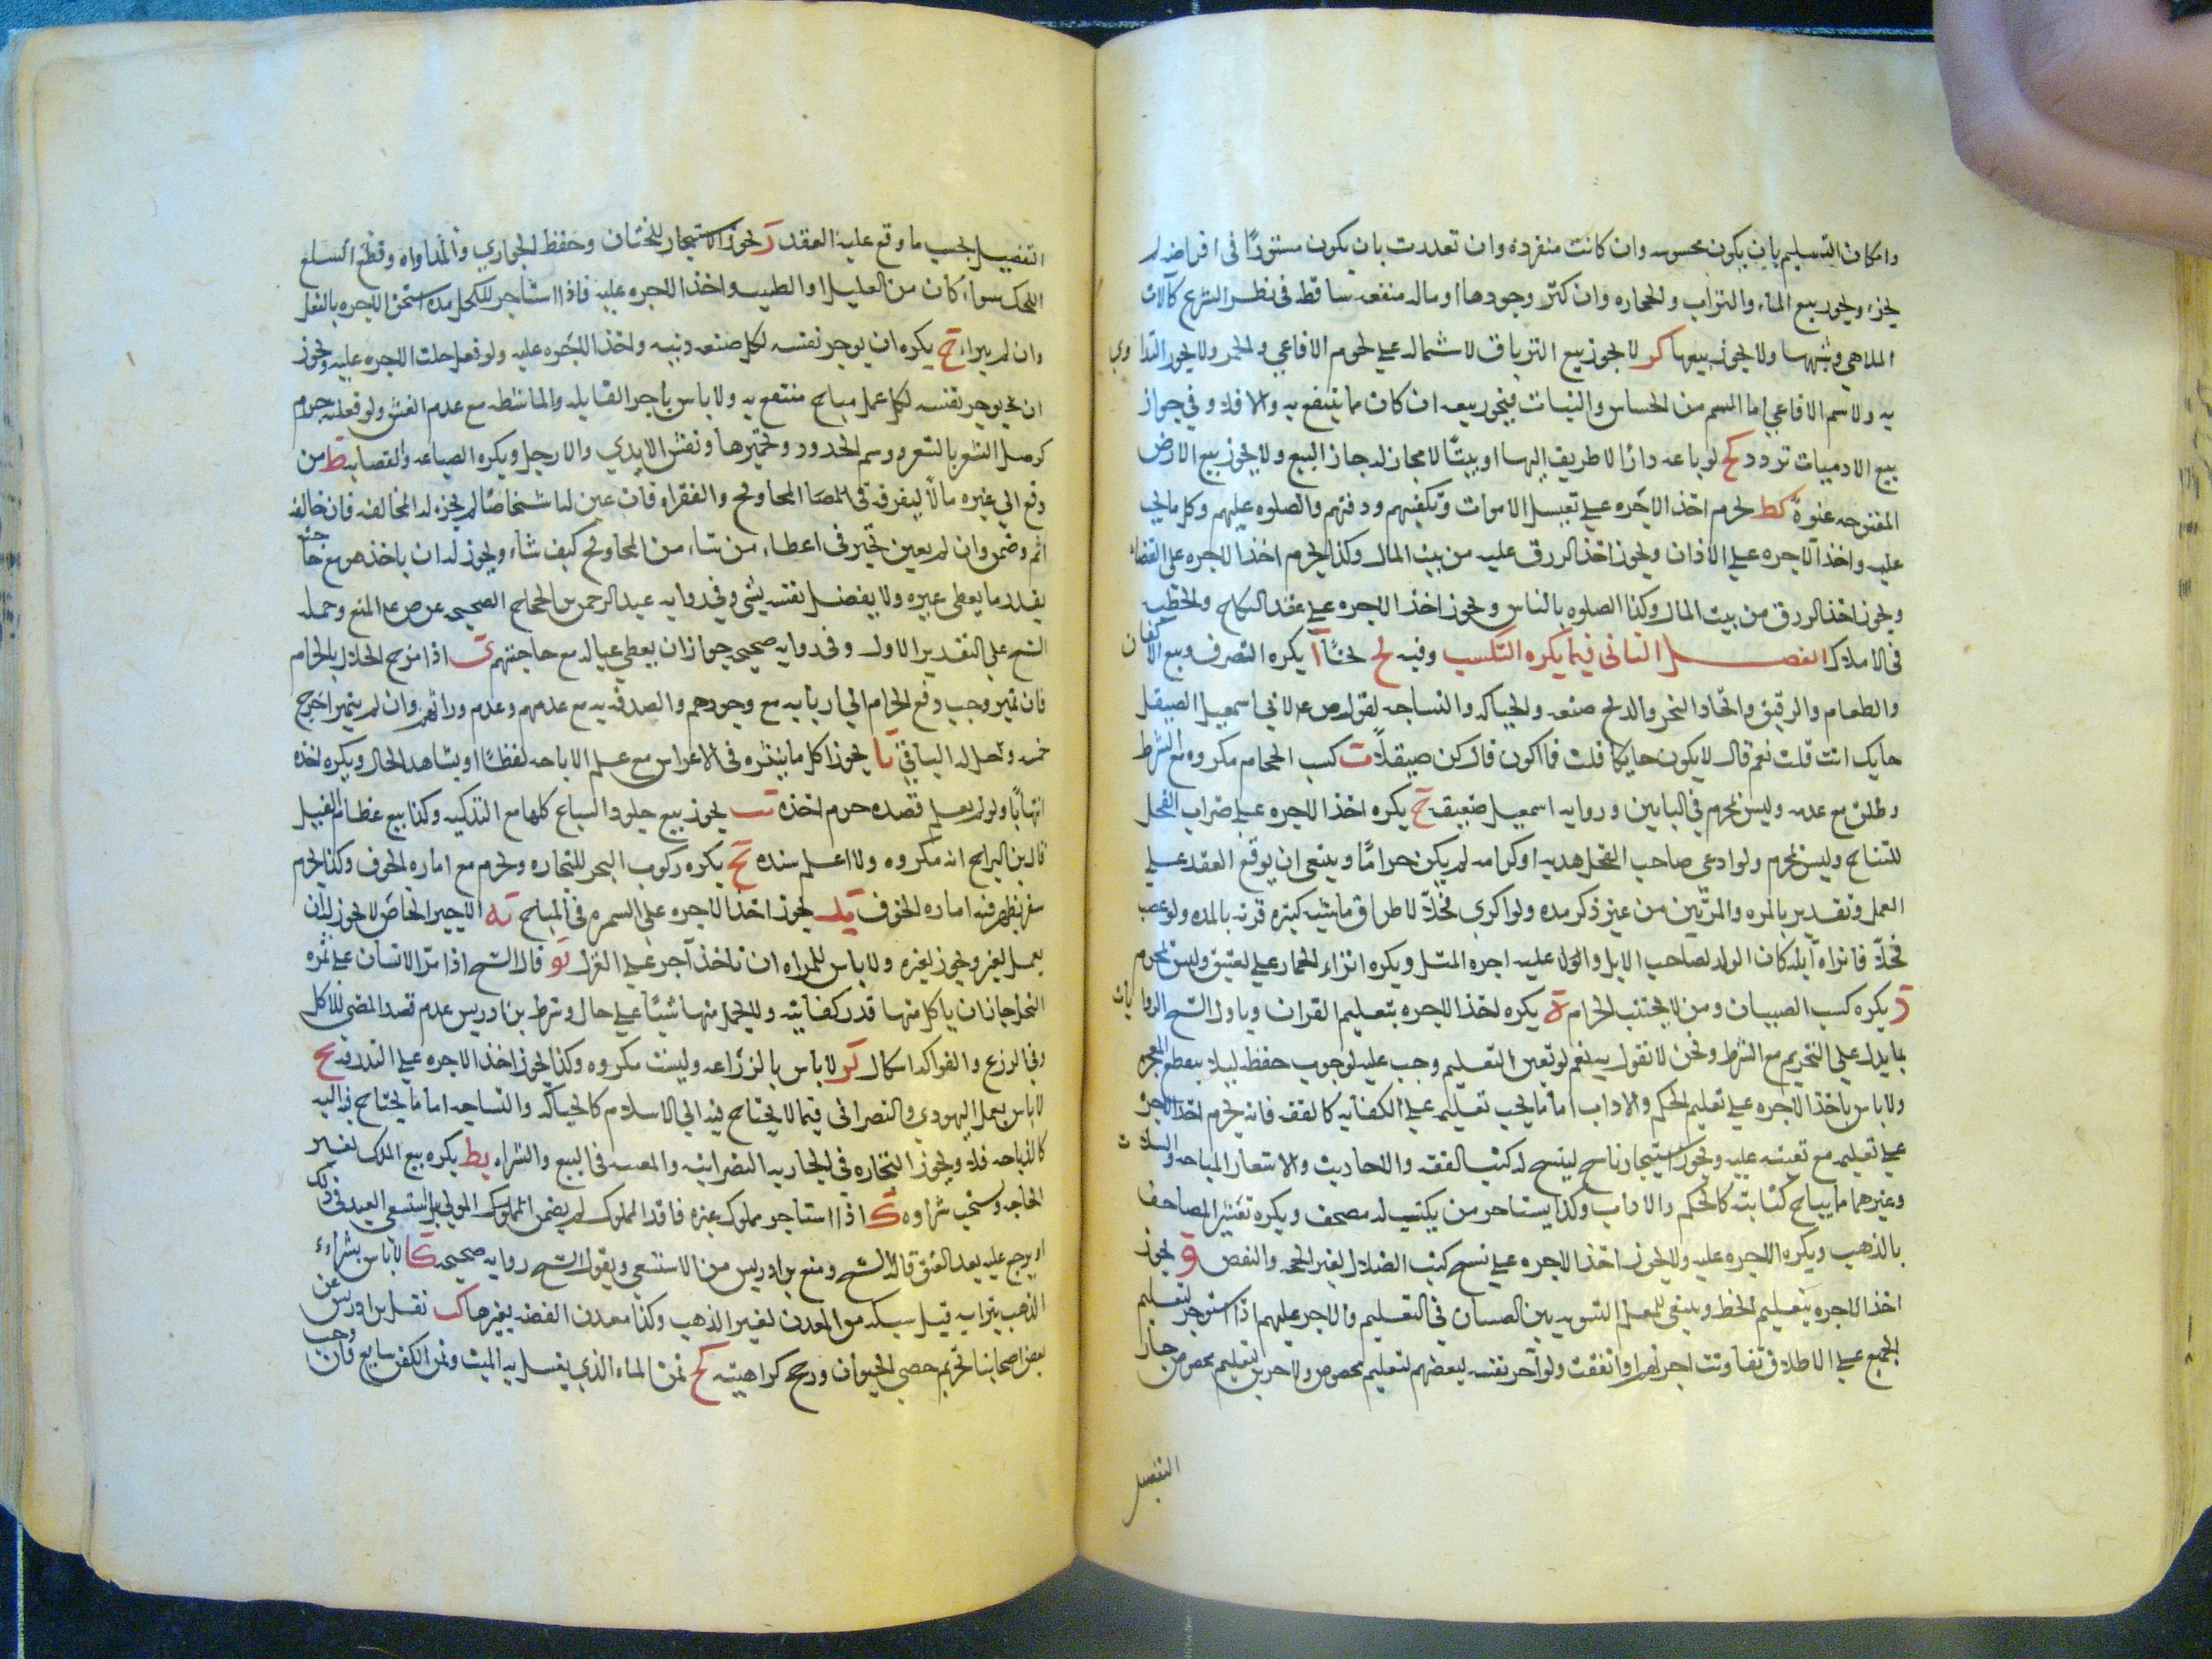 وامكان التسليم بان يكون محسوسه وان كانت منفرده وان تعددت بان يكون مستوررًا فى اقراضه لم
يجز ويجوز بيع الماء والتراب والحجاره وان كثر وجودها او ماله منفعه ساقطه فى نظر الشرع كآلات
الملاهي وشبهها ولا يجوز بيعها كز لا يجوز بيع الترياق لاشتماله على لحوم الافاعي والخمر ولا يجوز التداوي
به ولا سم الافاعي اما السم من الحشايش والنبات فيجوز بيعه ان كان مما ينتفع به والا فلا وفي جواز
بيع الادميات تردد كح لو باعه دارًا لا طريق اليها او بيتًا لا مجاز له جاز البيع ولا يجوز بيع الارض
المفتوحه عنوة كط يحرم اخذ الاجره على تغسيل الاموات وتكفينهم ودفنهم والصلوه عليهم وكل ما يجب
عليه واخذ الاجره على الاذان ويجوز اخذ الرزق عليه من بيت المال وكذا يحرم اخذ الاجره على القضاء
ويجوز اخذ الرزق من بيت المال وكذا الصلوه بالناس ويجوز اخذ الاجره على عقد النكاح والخطبه
فى الاملاك الفصل الثانى فيما يكره التكسب وفيه لح بحثًا آ يكره الصرف وبيع الاكفان
والطعام والرقيق واتخاذ النحر والذبح صنعه والحياكه والنساجه لقول ص ع لابي اسمعيل الصيقل
حايك انت قلت نعم قال لا يكون حايكا قلت فما اكون قال كن صيقلًا ب كسب الحجام مكروه مع الشرط
وطلق مع عدمه وليس بمحرم فى البابين وروايه اسمعيل ضعيفه ج يكره اخذ الاجره على ضراب الفحل
للنتاج وليس بمحرم ولو ادعى صاحب الفحل هديه او كرامه لم يكن حرامًا وينبغى ان يوقع العقد على
العمل وتقديره بالمره والمرتين من غير ذكر مده ولو اكرى فحلًا لاطراق ماشيه كثيره قرنه بالمده ولو غصب
فحلًا فانزاه ابله كان الولد لصاحب الابل وللاول عليه اجره المثل ويكره انزاء الحمار على العتيق وليس بمحرم
د يكره كسب الصبيان ومن لا يجتنب الحرام ه يكره اخذ الاجره بتعليم القران وباول الشيخ الروايات
بما يدل على التحريم مع الشرط ونحن لا نقول به نعم لو تعين التعليم وجب عليه لوجوب حفظه ليلا ينقطع المعجز
ولا باس باخذ الاجره على تعليم الحكم والاداب اما ما يجب تعليمه على الكفايه كالفقه فانه يحرم اخذ الاجره
على تعليمه مع تعينه عليه ويجوز استيجار ناسخ لينسخ له كتب الفقه والاحاديث والاشعار المباحه
وغيرهما مما يباح كتابته كالحكم والاداب وكذا يستاجر من يكتب له مصحف ويكره تعشير المصاحف
بالذهب ويكره الاجره عليه ولا يجوز اخذ الاجره على نسخ كتب الضلال لغير الحجه والنقض و يجوز
اخذ الاجره بتعليم الخط وينبغى للمعلم التسويه بين الصبيان فى التعليم والاجر عليهم اذا استوجر لتعليم
الجميع على الاطلاق تفاوتت اجرتهم او اتفقت ولو آجر نفسه لبعضهم لتعليم مخصوص ولاخرين لتعليم مخصوص جاز
التفضيل
التفضيل بحسب ما وقع عليه العقد ز يجوز الاستيجار للختان وخفض الجواري والمداواه وقطع السلع
الكحل سواء كان من العليل او الطبيب واخذ الاجره عليه فاذا استاجر للكحل مده استحق الاجره بالفعل
وان لم يبراء ح يكره ان يوجر نفسه لكل صنعه دنيه واخذ الاجره عليه ولو فعل حلت الاجره عليه ويجوز
ان يوجر نفسه لكل عمل مباح منتفع به ولا باس باجر القابله والماشطه مع عدم الغش ولو فعلته حرم
كوصل الشعر بالشعر ووسم الخدود وتحميرها ونقش الايدي والارجل ويكره الصياغه والقصابه ط من
دفع الي غيره مالًا ليفرقه فى المحاويج والفقراء فان عين له اشخاصًا لم يجز له المخالفه فان خالف
اثم وضمن وان لم يعين تخير فى اعطاء من شاء من المحاويج كيف شاء ويجوز له ان ياخذ هو مع حاجته
بقدر ما يعطى غيره ولا يفضل نفسه بشي وفي روايه عبد الرحمن بن الحجاج الصحيحه عن ص ع المنع وحمله
الشيخ على التقدير الاول وفى روايه صحيحه جواز ان يعطي عياله مع حاجتهم ى اذا مزج الحلال بالحرام
فان تميز وجب دفع الحرام الي اربابه مع وجودهم والصدقه به مع عدمهم وعدم وراثهم وان لم يتميز اخرج
خمسه وحل له الباقي يا يجوز اكل ما ينثر فى الاعراس مع علم الاباحه لفظًا او بشاهد الحال ويكره اخذه
انتهابًا ولو لم يعلم قصده حرم اخذه يب يجوز بيع جلود السباع كلها مع التذكيه وكذا بيع عظام الفيل
قال بن البراج انه مكروه ولا اعلم سنده يج يكره ركوب البحر للتجاره ويحرم مع اماره الخوف وكذا يحرم
سفر يظهر فيه اماره الخوف يد يجوز اخذ الاجره على السمسره فى المباح يه الاجير الخاص لا يجوز له ان
يعمل لغير ويجوز لغيره ولا باس للمراه ان تاخذ آجر على الغزل يو قال الشيخ اذا مر الانسان على ثمره
النخل جاز ان ياكل منها قدر كفايته ولا يحمل منها شيئًا على حال وشرط بن ادريس عدم قصد المضي للاكل
وفى الزرع والفواكه اشكال يز لا باس بالزراعه وليست مكروه وكذا يجوز اخذ الاجره على البدرقه يح
لا باس بعمل اليهودي والنصرانى فيما لا يحتاج فيه الي الاسلام كالحياكه والنساجه اما ما يحتاج فيه اليه
كالذباحه فلا ويجوز التجاره في الجاريه النصرانيه والمغنيه فى البيع والشراء يط يكره بيع الملك لغير
الحاجه ويستحب شراوه ك اذا استاجر مملوك غيره فافسد المملوك لم يضمن المملوك المولي بل يستسعى العبد فى ذلك
او يرجع عليه بعد العتق قاله الشيخ ومنع بن ادريس من الاستسعي وبقول الشيخ روايه صحيحه كا لا باس بشراء
الذهب بترابه قبل سبكه من المعدن لغير الذهب وكذا معدن الفضه بغيرها كب نقل بن ادريس عن
بعض اصحابنا تحريم خصي الحيوان ورجح كراهيته كج ثمن الماء الذي يغسل به الميت وثمن الكفن سايغ وان وجب